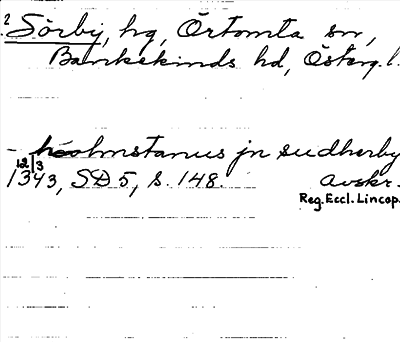 2 Sörby, hg, Örtomta sn,
Bankekinds hd, Österg. l.
- holmstanus jn sudherby
12/3 1343, SD 5, s. 148. avskr.
Reg. Eccl. Lincop.